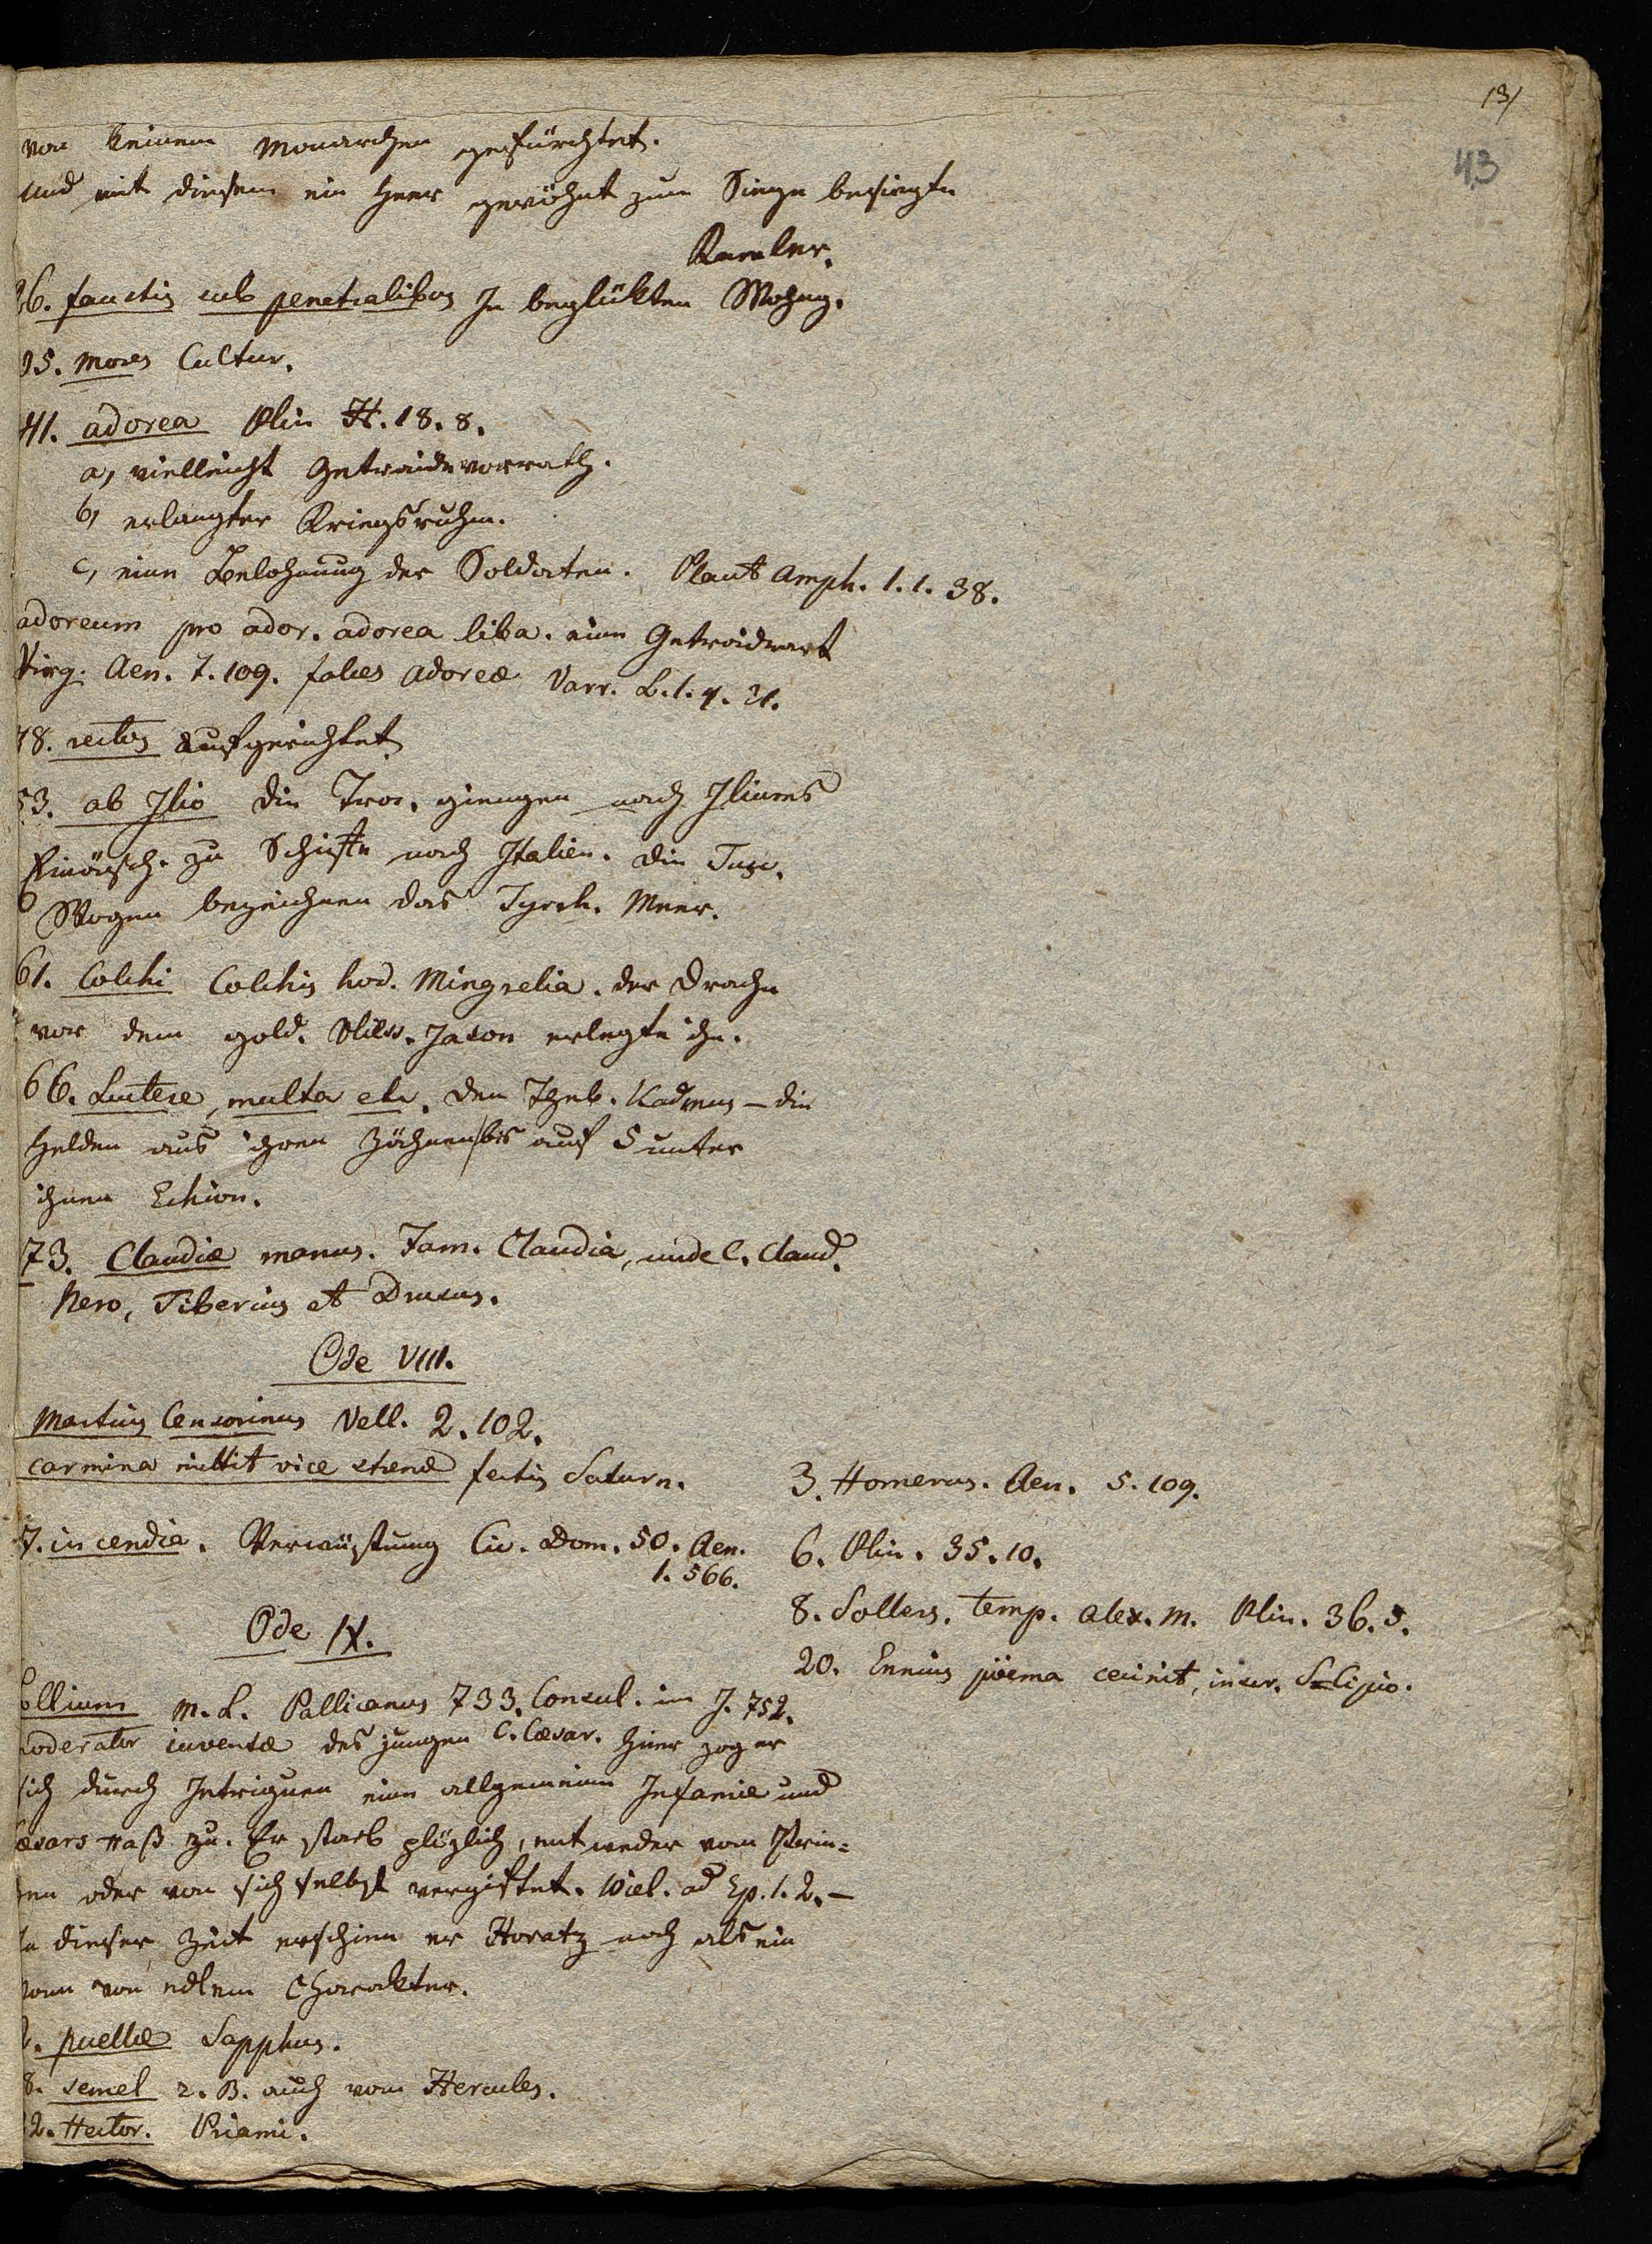 131
43
von keinem Monarchen gefürchtet.
Und mit diesem ein Heer gewöhnt zum Siege besiegte
Ramler.
26. faustis sub penetralibus In beglükten Wohng.
35. Mores Cultur.
41. adorea Plin H. 18. 8.
a, vielleicht Getraidevorrath.
b, erlangter Kriegsruhm.
c, eine Belohnung der Soldaten. Plaut Amph. 1. 1. 38.
adoreum pro ador. adorea liba. eine Getraideart
Virg. Aen. 7. 109. Varr. L. 1. 4. 21.
48. rectos Aufgerichtet
53. ab Ilio die Troi. giengen nach Iliums
Einäsch. zu Schiffe nach Italien. die Tusc.
Wogen bezeichnen das Tyrrh. Meer.
61. Colchi Colchis hod. Mingrelia. der Drache
vor dem gold. Vliess. Jason erlegte ihn.
66. Luctere, multa etc. den Theb. Kadmus – die
Helden aus ihren Zähnen bis auf 5 unter
ihnen Echion.
73. Claudiæ manus. Fam. Claudia, unde C. Claud.
Nero, Tiberius et Drusus.
Ode VIII.
Martius Censorinus Vell. 2. 102.
carmina mittit vice strenæ festis Saturn.
7. incendia. Verwüstung Cic. Dom. 50. Aen.
1. 566.
3. Homerus. Aen. 5. 109.
6. Plin. 35. 10.
8. Sollers. temp. Alex. M. Plin. 36. 5.
20. Ennius poema cecinit, inscr. Scipio.
Ode IX.
Lollium M. L. Pallicanus 733. Consul. im J. 752.
moderator iuventæ des jungen C. Cæsar. hier zog er
sich durch Intriguen eine allgemeine Infamie und
Cæsars Haß zu. Er starb plözlich, entweder vom Prin-
zen oder von sich selbst vergiftet. Wiel. ad Ep. 1. 2. –
In dieser Zeit erschien er Horatz noch als ein
Mann von edlem Charakter.
12. puellæ Sapphus.
18. semel z. B. auch vom Hercules.
22. Hector. Priami.